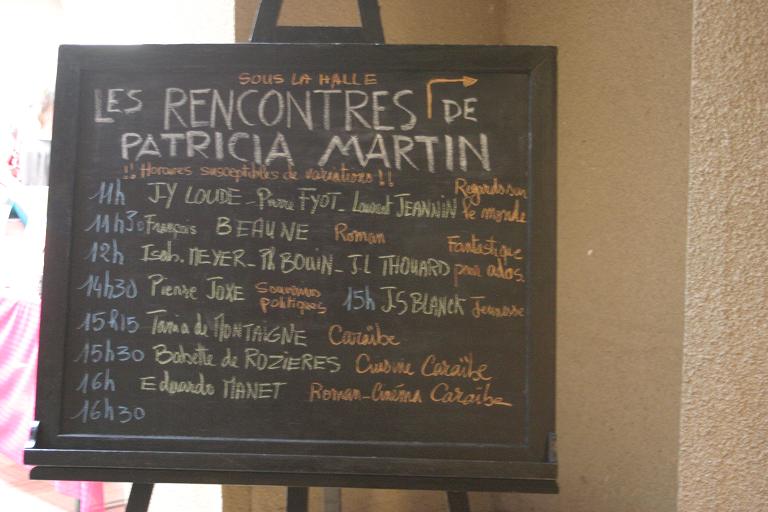 SOUS LA HALLE
LES RENCONTRES DE
PATRICIA MARTIN
!! Horaires susceptibles de variations !!
11h J-Y LOUDE - Pierre FYOT - Laurent JEANNIN Regards sur
le monde
11h30 François BEAUNE Roman
12h Isab. MEYER - Ph BOUIN - J.L THOUARD Fantastique
pour ados
14h30 Pierre JOXE Souvenirs
politiques 15h J.S BLANCK Jeunesse
15h15 Tania de MONTAIGNE Caraïbe
15h30 Babette de ROZIERES Cuisine Caraïbe
16h Eduardo MANET Roman-Cinéma Caraïbe
16h30